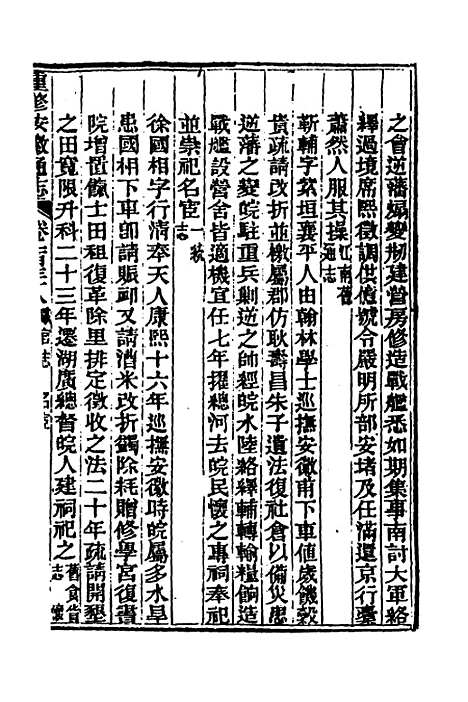 之會逆藩煽變剏建營房修造戰艦悉如期集事南討大軍絡
繹過境席熙徵調供億號令嚴明所部安堵及任滿還京行橐
蕭然人服其操江南舊通志
靳輔字紫垣襄平人由翰林學士巡撫安徽甫下車値歲饑穀
貴疏請改折並檄屬郡仿耿壽昌朱子遺法復社倉以備災患
逆藩之變皖駐重兵剿逆之師經皖水陸絡繹輔轉輸糧餉造
戰艦設營舍皆適機宜任七年擢總河去皖民懷之專祠奉祀
並崇祀名宦志
徐國相字行清奉天人康熙十六年巡撫安徽時皖屬多水旱
患國相下車卽請賑卹又請漕米改折蠲除耗贈修學宮復書
院增置餼士田租復革除里排定徵收之法二十年疏請開墾
之田寬限升科二十三年遷湖廣總督皖人建祠祀之
重修安徽通志
卷一百三十八
職官志
名宦